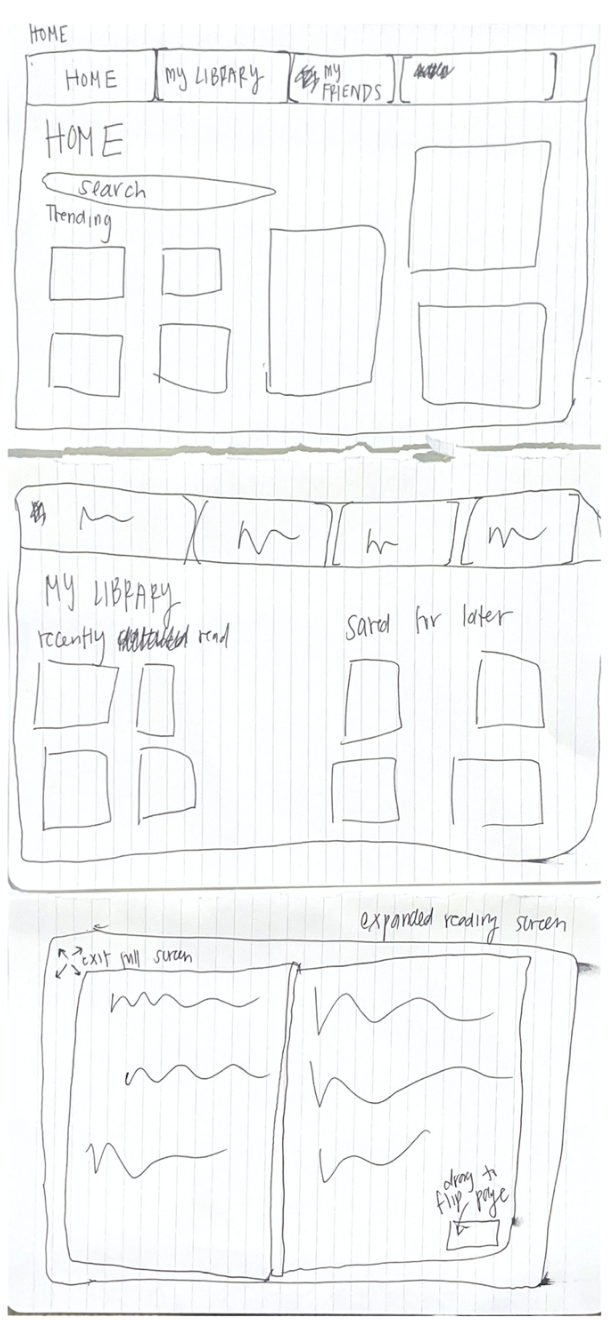 HOME
HOME
MY LIBRARY
MY
FRIENDS
HOME
search
Trending
MY LIBRARY
recently read
saved for later
expanded reading screen
exit full screen
drag to
flip page